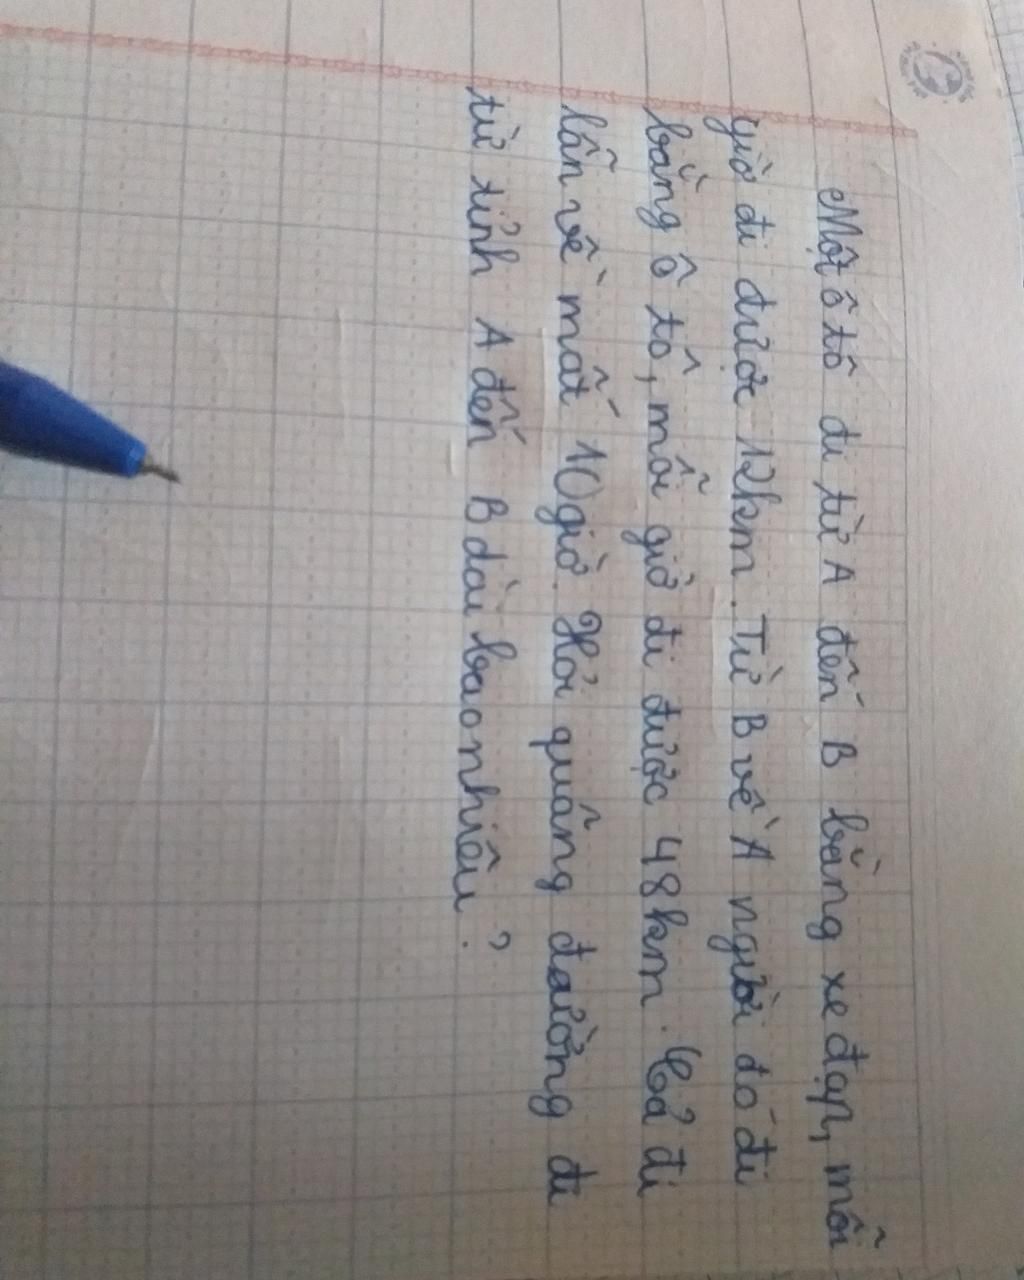 Một ô tô đi từ A đến B bằng xe đạp, mỗi
giờ đi được 12km. Từ B về A người đó đi
bằng ô tô, mỗi giờ đi được 48km. Cả đi
lẫn về mất 10 giờ. Hỏi quãng đường đi
từ tỉnh A đến B dài bao nhiêu?